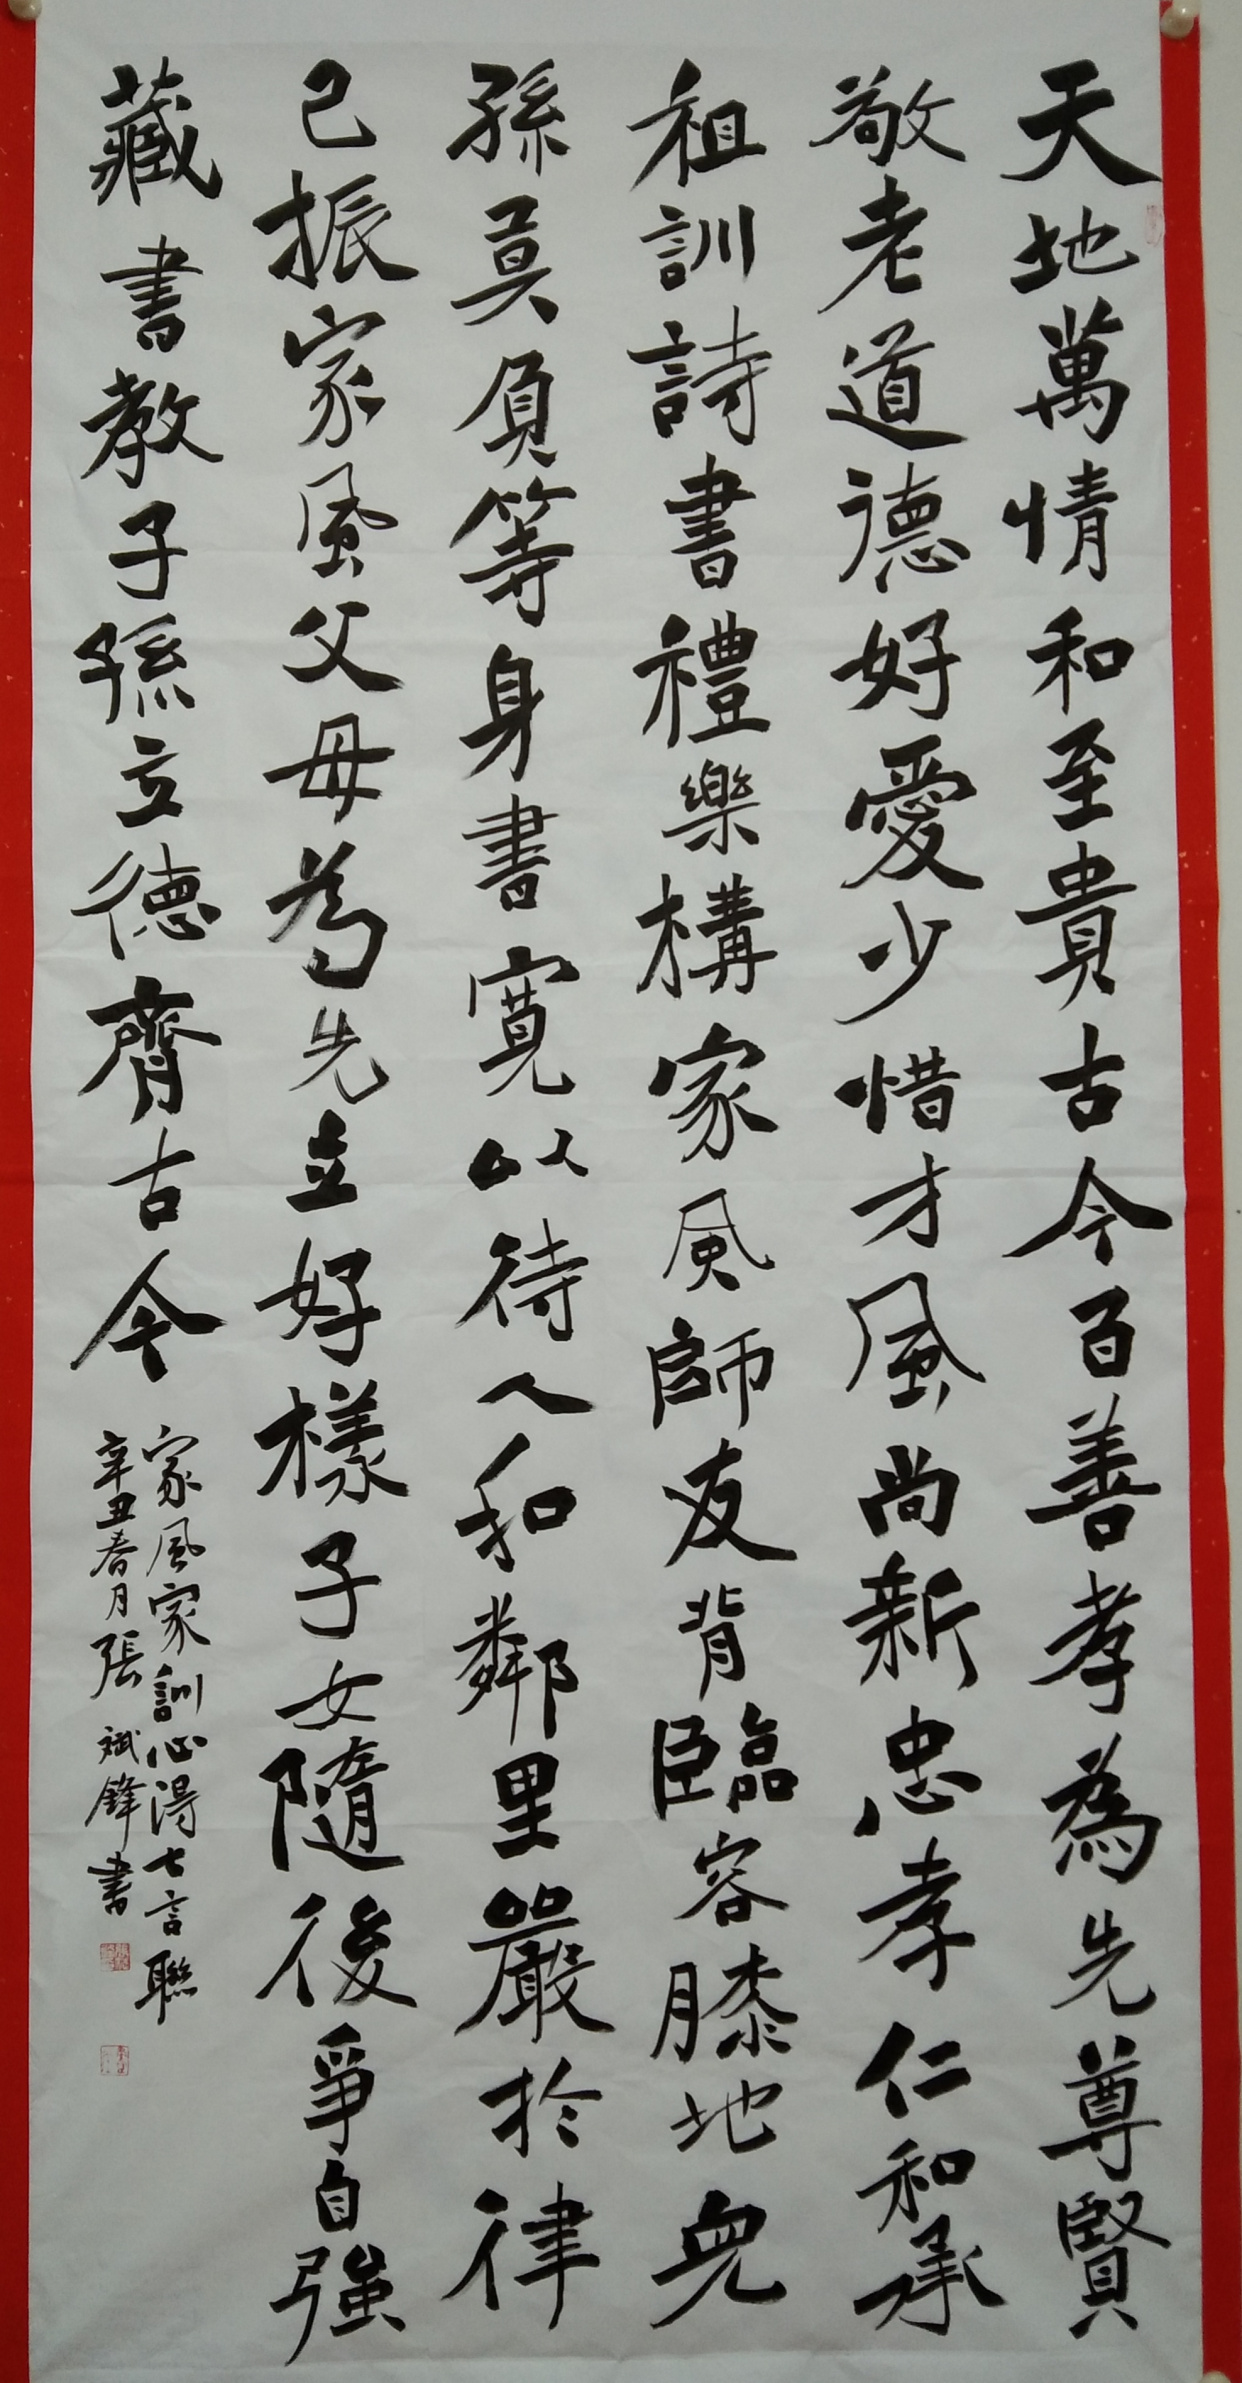 天地萬情和至貴古今百善孝為先尊賢
敬老道德好愛少惜才風尚新忠孝仁和承
祖訓詩書禮樂構家風師友背臨容膝地兒
孫莫負等身書寬以待人和鄰里嚴於律
己振家風父母為先立好樣子女隨後爭自強
藏書教子孫立德齊古今
家風家訓心得七言聯
辛丑春月張斌鋒書